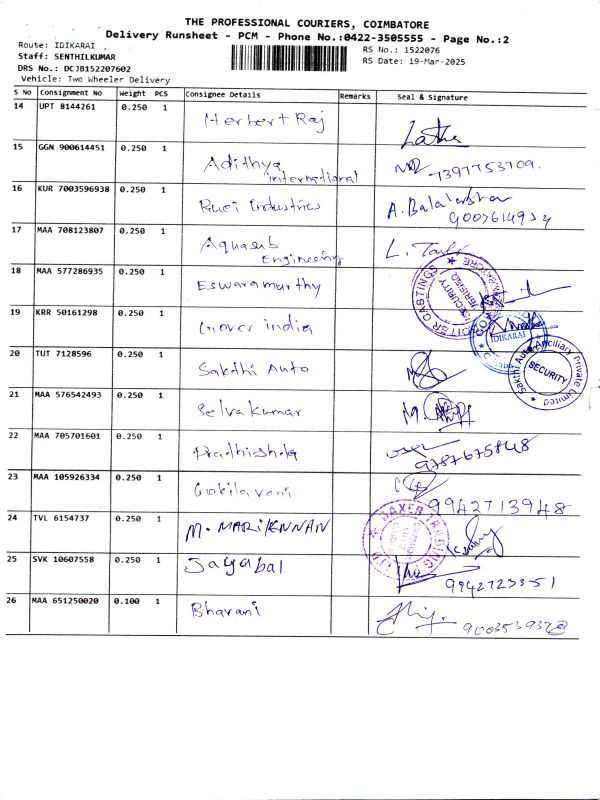 THE PROFESSIONAL COURIERS, COIMBATORE
Delivery Runsheet - PCM - Phone No.:0422-3505555 - Page No.:2
Route: IDIKARAI
RS No.: 1522076
Staff: SENTHILKUMAR
RS Date: 19-Mar-2025
DRS No.: DCJB152207602
Vehicle: Two Wheeler Delivery
S No Consignment No Weight PCS Consignee Details Remarks Seal & Signature
14 UPT 8144261 0.250 1 Herbert Raj Latha
15 GGN 900614451 0.250 1 Adithya international 7397753709.
16 KUR 7003596938 0.250 1 Industries A. Balakrishnan
17 MAA 708123807 0.250 1 Aquasub Engineering
18 MAA 577286935 0.250 1 Eswaramurthy SECURITY
19 KRR 50161298 0.250 1 india IDIKARAI
20 TUT 7128596 0.250 1 Sakthi Auto Sakthi Auto Ancillary Private Limited SECURITY
21 MAA 576542493 0.250 1 Selvakumar
22 MAA 705701601 0.250 1 9787675848
23 MAA 105926334 0.250 1 Gokilavani 9942713948
24 TVL 6154737 0.250 1 TRADING
25 SVK 10607558 0.250 1 Jayabal 9942723351
26 MAA 651250020 0.100 1 Bhavani